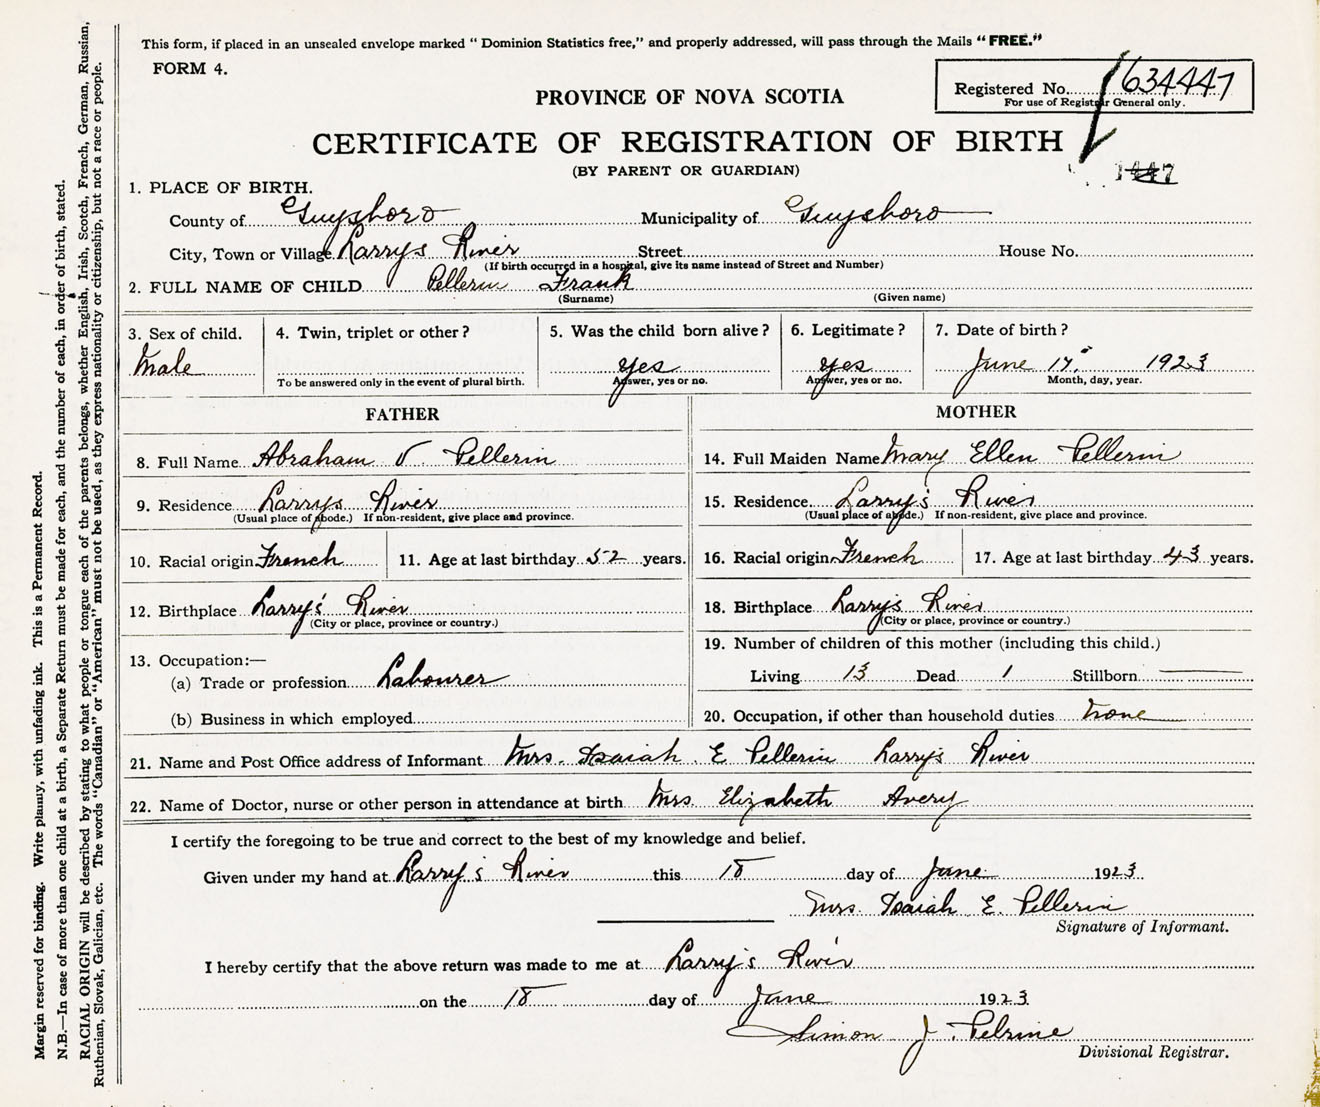 This form, if placed in an unsealed envelope marked " Dominion Statistics free," and properly addressed, will pass through the Mails " FREE."
FORM 4.
Registered No. 634447
For use of Registrar General only.
PROVINCE OF NOVA SCOTIA
CERTIFICATE OF REGISTRATION OF BIRTH
(BY PARENT OR GUARDIAN)
1447
1. PLACE OF BIRTH.
County of Guysboro Municipality of Guysboro
City, Town or Village Larrys River Street House No.
(If birth occurred in a hospital, give its name instead of Street and Number)
2. FULL NAME OF CHILD Pellerin Frank
(Surname) (Given name)
3. Sex of child. 4. Twin, triplet or other? 5. Was the child born alive? 6. Legitimate? 7. Date of birth?
Male Yes Yes June 17 1923
To be answered only in the event of plural birth. Answer, yes or no. Answer, yes or no. Month, day, year.
FATHER MOTHER
8. Full Name Abraham V Pellerin 14. Full Maiden Name Mary Ellen Pellerin
9. Residence Larrys River 15. Residence Larry's River
(Usual place of abode.) If non-resident, give place and province. (Usual place of abode.) If non-resident, give place and province.
10. Racial origin French 11. Age at last birthday 52 years. 16. Racial origin French 17. Age at last birthday 43 years.
12. Birthplace Larry's River 18. Birthplace Larry's River
(City or place, province or country.) (City or place, province or country.)
19. Number of children of this mother (including this child.)
13. Occupation:—
(a) Trade or profession Labourer Living 13 Dead 1 Stillborn
(b) Business in which employed 20. Occupation, if other than household duties None
21. Name and Post Office address of Informant Mrs. Isaiah E Pellerin Larry's River
22. Name of Doctor, nurse or other person in attendance at birth Mrs. Elizabeth Avery
I certify the foregoing to be true and correct to the best of my knowledge and belief.
Given under my hand at Larry's River this 18 day of June 1923
Mrs. Isaiah E. Pellerin
Signature of Informant.
I hereby certify that the above return was made to me at Larry's River
on the 18 day of June 1923
Simon J. Pelrine
Divisional Registrar.
Margin reserved for binding. Write plainly, with unfading ink. This is a Permanent Record.
N.B.—In case of more than one child at a birth, a Separate Return must be made for each, and the number of each, in order of birth, stated.
RACIAL ORIGIN will be described by stating to what people or tongue each of the parents belongs, whether English, Irish, Scotch, French, German, Russian,
Ruthenian, Slovak, Galician, etc. The words "Canadian" or "American" must not be used, as they express nationality or citizenship, but not a race or people.